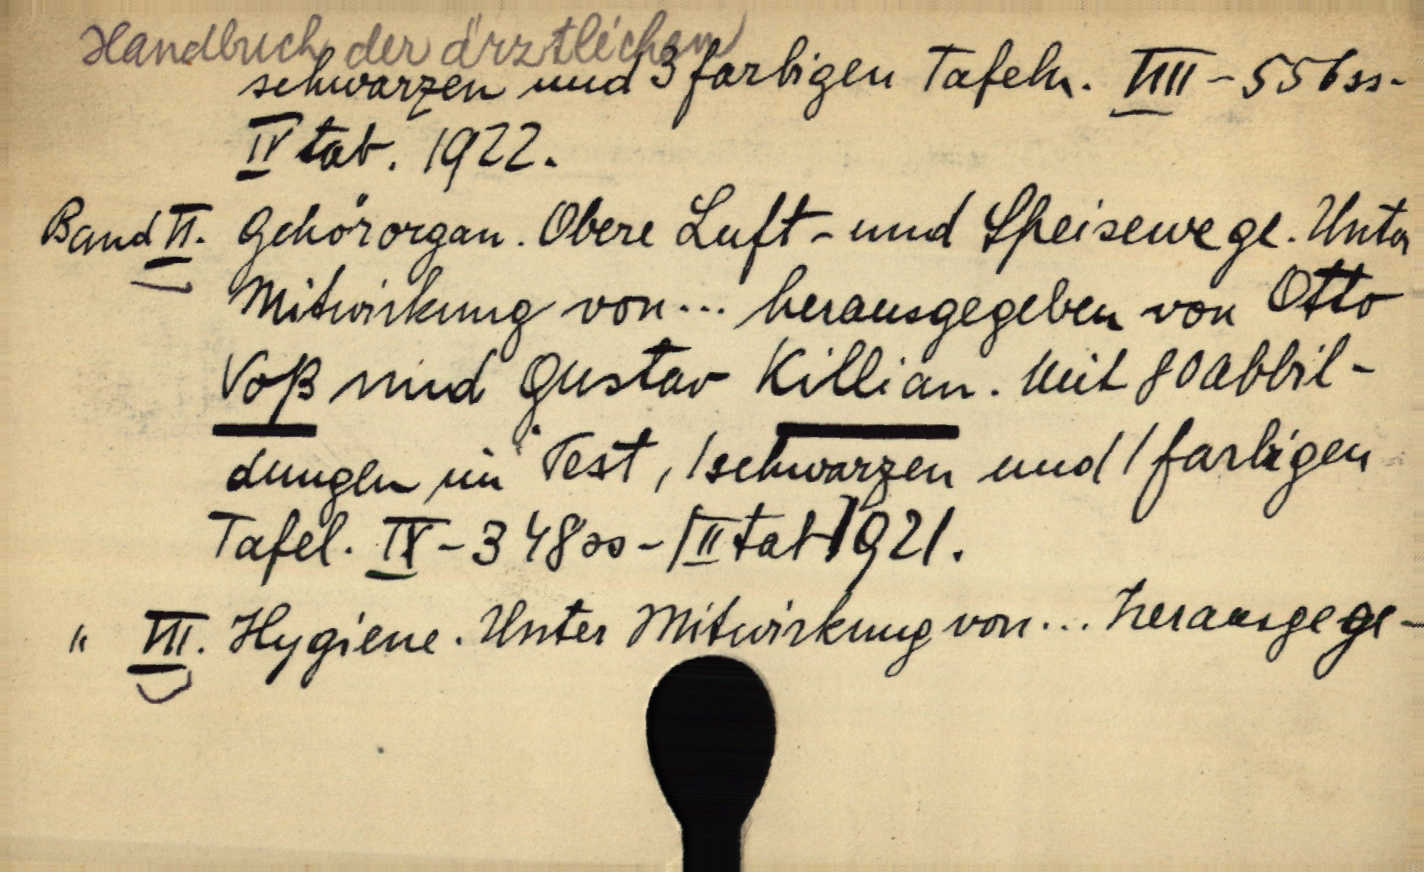 Handbuch der ärztlichen
schwarzen und 3 farbigen Tafeln. VIII - 556 ss -
IV tab. 1922.
Band VI. Gehörorgan. Obere Luft- und Speisewege. Unter
Mitwirkung von... herausgegeben von Otto
Voß und Gustav Killian. Mit 80 Abbil-
dungen im Test, 1 schwarzen und 1 farbigen
Tafel. IX - 348 ss - II tab 1921.
" VII. Hygiene. Unter Mitwirkung von... herausgege-